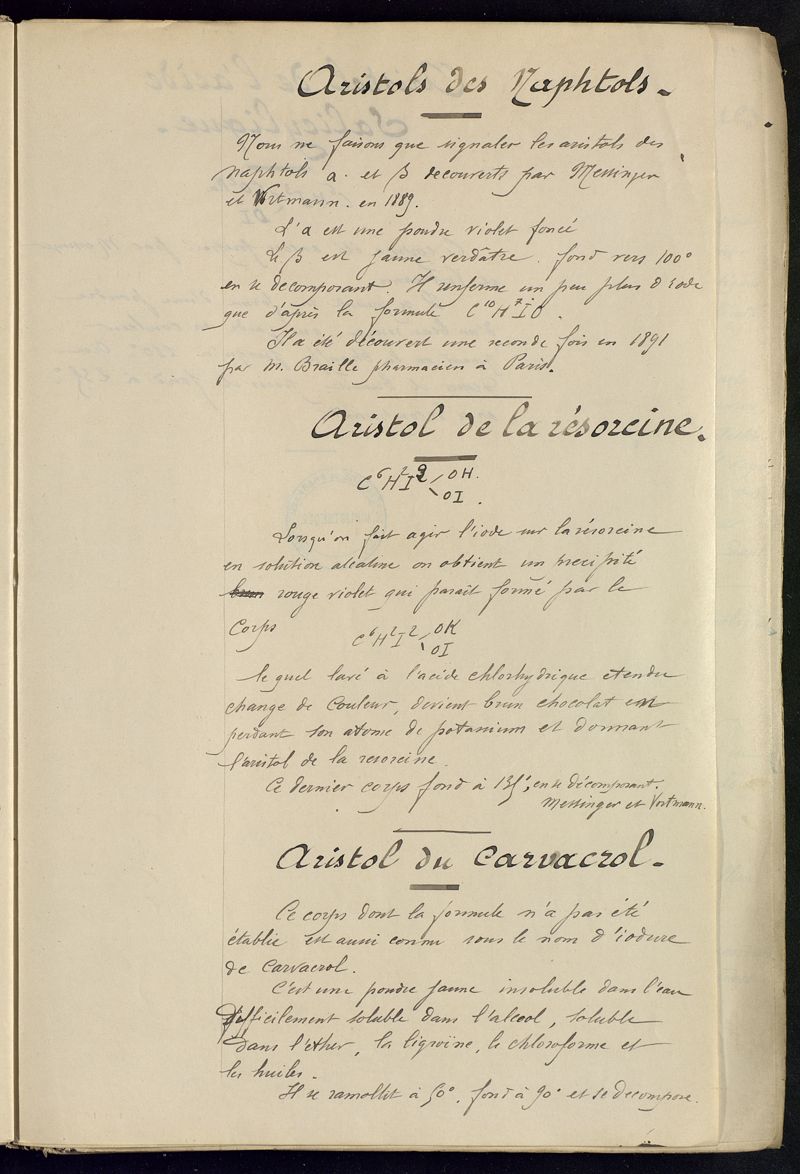 Aristols des Naphtols.
Nous ne faisons que signaler les aristols des
naphtols α. et β decouverts par Messinger
et Vortmann. en 1889.
L'α est une poudre violet foncé
Le β est jaune verdâtre. fond vers 100°
en se decomposant. Il renferme un peu plus d'iode
que d'après la formule C¹⁰H⁷IO.
Il a été découvert une seconde fois en 1891
par M. Braille pharmacien à Paris.
Aristol de la résorcine.
C⁶H²I²
OH.
OI.
Lorsqu'on fait agir l'iode sur la résorcine
en solution alcaline on obtient un precipité
brun rouge violet qui parait formé par le
Corps C⁶H²I²
OK
OI
lequel lavé à l'acide chlorhydrique etendu
change de Couleur, devient brun chocolat en
perdant son atome de potassium et donnant
l'aristol de la resorcine.
Ce dernier corps fond à en se décomposant.
Messinger et Vortmann.
Aristol du Carvacrol.
Ce corps dont la formule n'a pas été
établie est aussi connu sous le nom d'iodure
de Carvacrol.
C'est une poudre jaune insoluble dans l'eau
Difficilement soluble dans l'alcool, soluble
dans l'ether, la ligroïne, le chloroforme et
les huiles.
Il se ramollit à 50°. fond à 90° et se decompose.